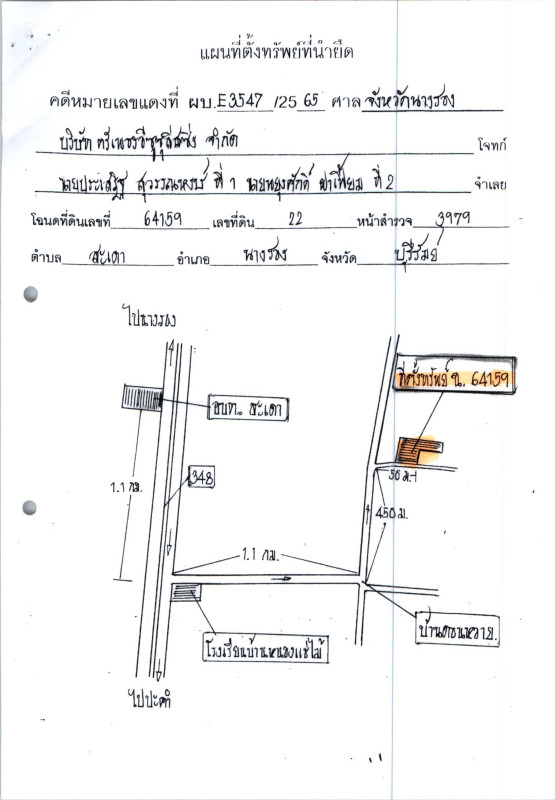 แผนที่ตั้งทรัพย์ที่นำยึด
คดีหมายเลขแดงที่ ผบ.E3547 /25 65 ศาล จังหวัดนางรอง
บริษัท ศรีเพชรอีซูซุลีสซิ่ง จำกัด โจทก์
นายประเสริฐ สุวรรณหงษ์ ที่ 1 นายพยุงศักดิ์ ฝาเฟี้ยม ที่ 2 จำเลย
โฉนดที่ดินเลขที่ 64159 เลขที่ดิน 22 หน้าสำรวจ 3979
ตำบล สะเดา อำเภอ นางรอง จังหวัด บุรีรัมย์
ไปนางรอง
ที่ตั้งทรัพย์ ฉ. 64159
อบต. สะเดา
348
1.1 กม.
50 ม.
450 ม.
1.1 กม.
บ้านดอนหวาย
โรงเรียนบ้านหนองแซ่ไม้
ไปปะคำ